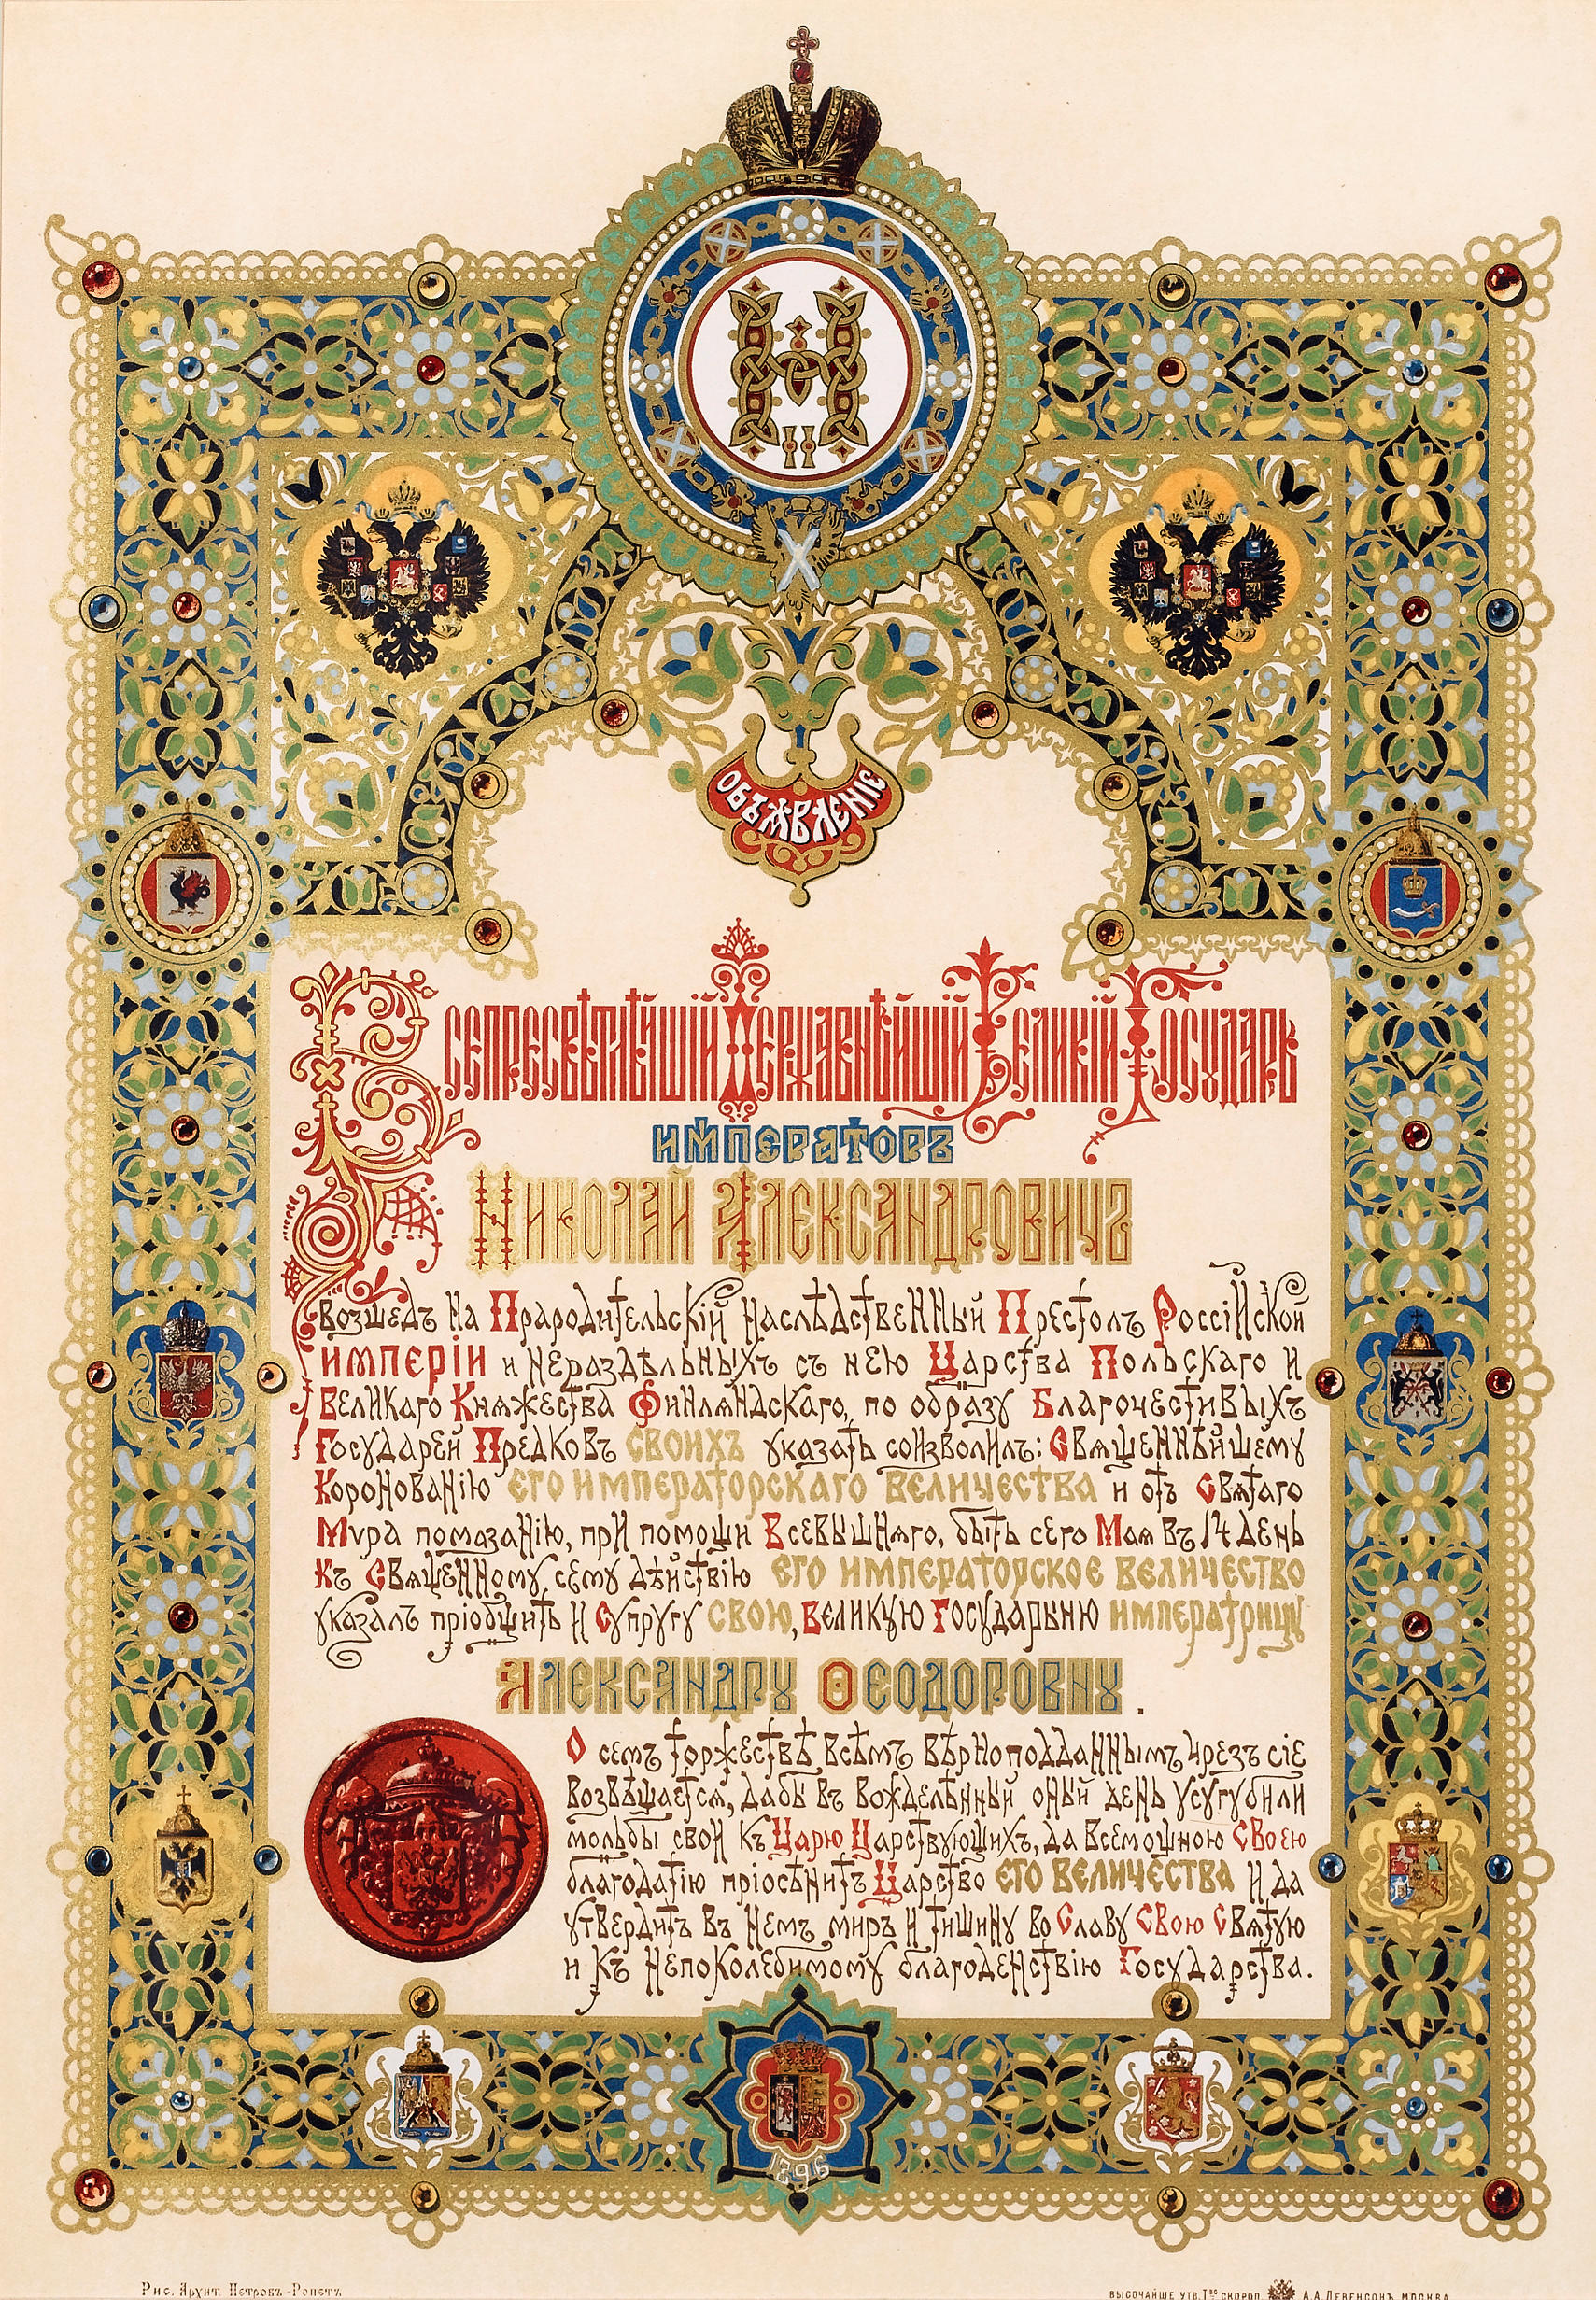 Н
II
ОБЪѦВЛЕНІЕ
ВСЕПРЕСВѢТЛѢЙШІЙ ДЕРЖАВНѢЙШІЙ ВЕЛИКІЙ ГОСУДАРЬ
ИМПЕРАТОРЪ
НИКОЛАЙ АЛЕКСАНДРОВИЧЪ
возшедъ на Прародительскій наслѣдственный Престолъ Россійской
ИМПЕРІИ и нераздѣльныхъ съ нею Царства Польскаго и
Великаго Княжества Финляндскаго, по образу Благочестивыхъ
Государей Предковъ СВОИХЪ указать соизволилъ: Священнѣйшему
Коронованію ЕГО ИМПЕРАТОРСКАГО ВЕЛИЧЕСТВА и отъ Святаго
Мѵра помазанію, при помощи Всевышняго, быть сего Мая въ 14 день
Къ Священному сему дѣйствію ЕГО ИМПЕРАТОРСКОЕ ВЕЛИЧЕСТВО
указалъ пріобщить и Супругу СВОЮ, Великую Государыню ИМПЕРАТРИЦУ
АЛЕКСАНДРУ ѲЕОДОРОВНУ.
О семъ торжествѣ всѣмъ вѣрноподданнымъ чрезъ сіе
возвѣщается, дабы въ вожделѣнный оный день усугубили
мольбы свои къ Царю Царствующихъ, да всемощною Своею
благодатію пріосѣнитъ Царство ЕГО ВЕЛИЧЕСТВА и да
утвердитъ въ немъ миръ и тишину во Славу Свою Святую
и къ непоколебимому благоденствію Государства.
1896
Рис. Архит. Петровъ-Ропетъ
ВЫСОЧАЙШЕ УТВ. Т-ВО СКОРОП. А.А.ЛЕВЕНСОНЪ, МОСКВА